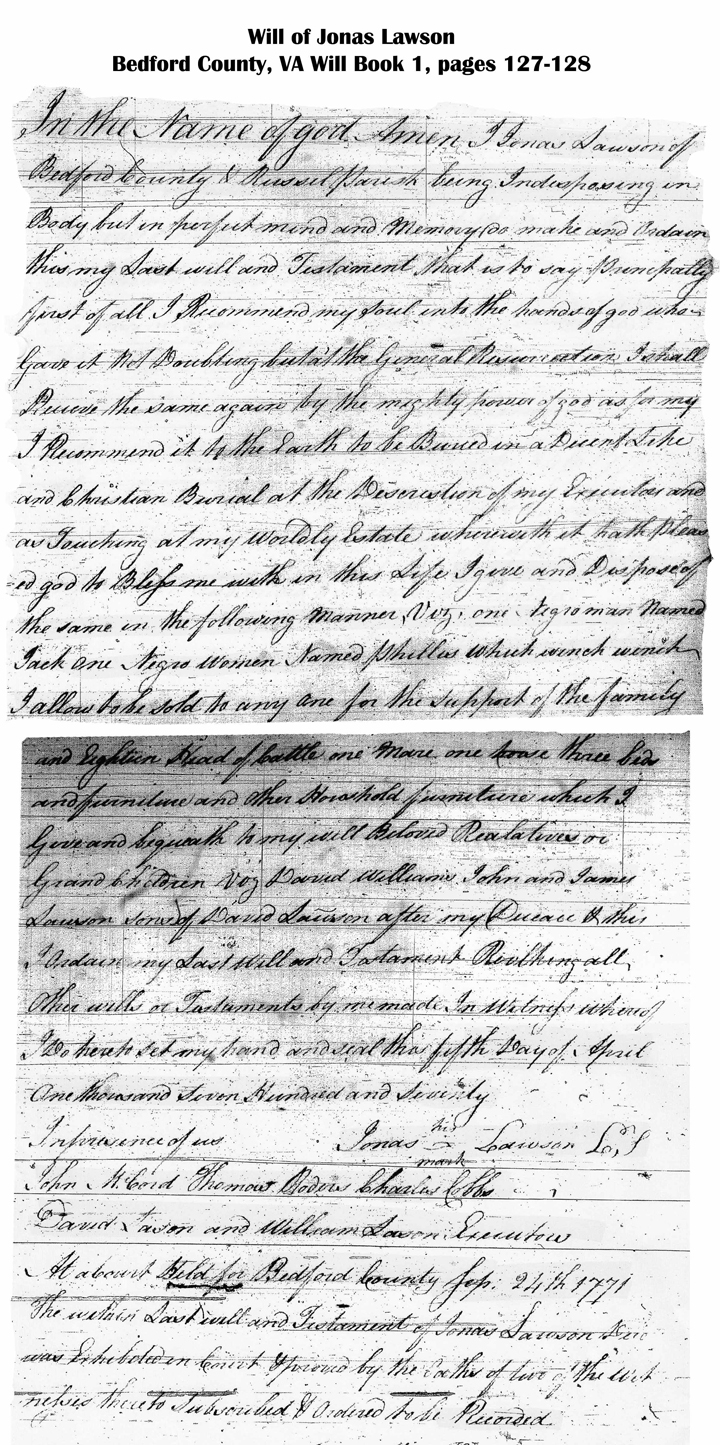 Will of Jonas Lawson
Bedford County, VA Will Book 1, pages 127-128
In the Name of god Amen I Jonas Lawson of
Bedford County & Russel Parish being Indisposing in
Body but in perfect mind and Memory do make and Ordain
this my Last will and Testament that is to say Principally
first of all I Recommend my soul into the hands of god who
Gave it Not Doubting but at the General Resurrection I shall
Recieve the same again by the mighty power of god as for my
I Recommend it to the Earth to be Buried in a Decent Like
and Christian Burial at the Descrestion of my Executors and
as Touching at my Worldly Estate wherewith it hath pleas
ed god to Bless me with in this Life I give and Dispose of
the same in the following Manner, Viz, one Negro man Named
Jack one Negro Women Named Phillis which winch
I allow to be sold to any one for the support of the family
and Eighteen Head of Cattle one Mare one horse three beds
and furniture and other Houshold furniture which I
Give and bequeath to my will Beloved Realatives or
Grand Children Viz David Williams John and James
Lawson Sons of David Lawson after my Deceas & this
I Ordain my Last Will and Tastament all
Other wills or Tastaments by me made In Witness whereof
I Do hereto set my hand and seal this fifth Day of April
One thousand Seven Hundred and Seventy
In presence of us Jonas his mark Lawson L,S
John McCord Thomas Charles Cobbs
David Lason and William Lason Executors
At a Court Held for Bedford County Sep. 24th 1771
The within Last will and Testament of Jonas Lawson Dec
was Exhibeted in Court & proved by the Oaths of two of the Wit
nesses thereto Subscribed & Ordered to be Recorded